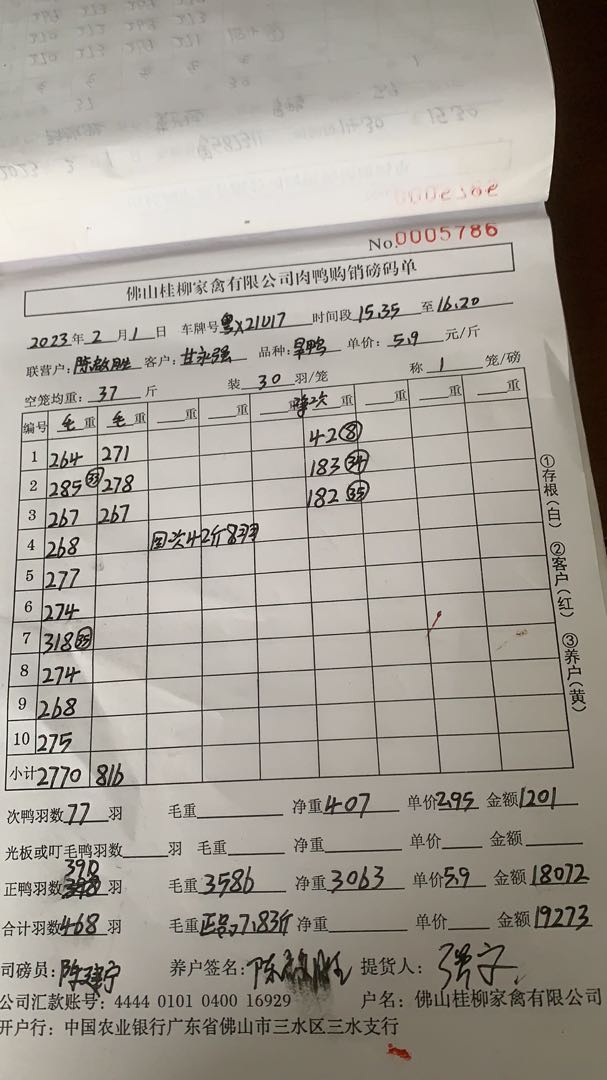 No.0005786
佛山桂柳家禽有限公司肉鸭购销磅码单
2023年2月1日 车牌号粤X21U17 时间段15.35至16.20
联营户:陈啟胜 客户:甘永强 品种:旱鸭 单价:5.9元/斤
空笼均重:37斤 装30羽/笼 称1笼/磅
编号 毛重 毛重 重 重 重 次重 重 重 重
1 264 271 42⑧
2 285㉝ 278 183㉞
3 267 267 182㉟
4 268 次42斤8羽
5 277
6 274
7 318㉟
8 274
9 268
10 275
小计 2770 816
①存根(白) ②客户(红) ③养户(黄)
次鸭羽数77羽 毛重 净重407 单价2.95 金额1201
光板或叮毛鸭羽数 羽 毛重 净重 单价 金额
390
正鸭羽数398羽 毛重3586 净重3063 单价5.9 金额18072
合计羽数468羽 毛重正品7.83斤 净重 单价 金额19273
司磅员:陈建宁 养户签名:陈啟胜 提货人:
公司汇款账号:4444 0101 0400 16929 户名:佛山桂柳家禽有限公司
开户行:中国农业银行广东省佛山市三水区三水支行